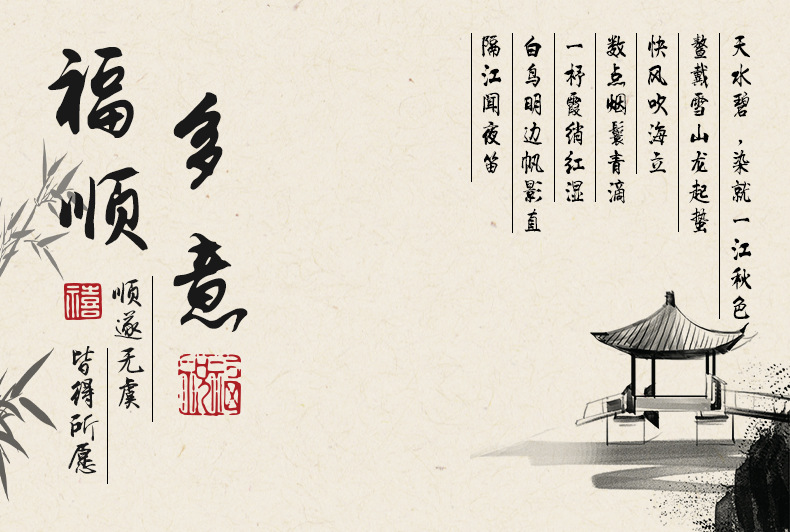 天水碧，染就一江秋色
鳌戴雪山龙起蛰
快风吹海立
数点烟鬟青滴
一杼霞绡红湿
白鸟明边帆影直
隔江闻夜笛
多意
福顺
顺遂无虞
皆得所愿
禧